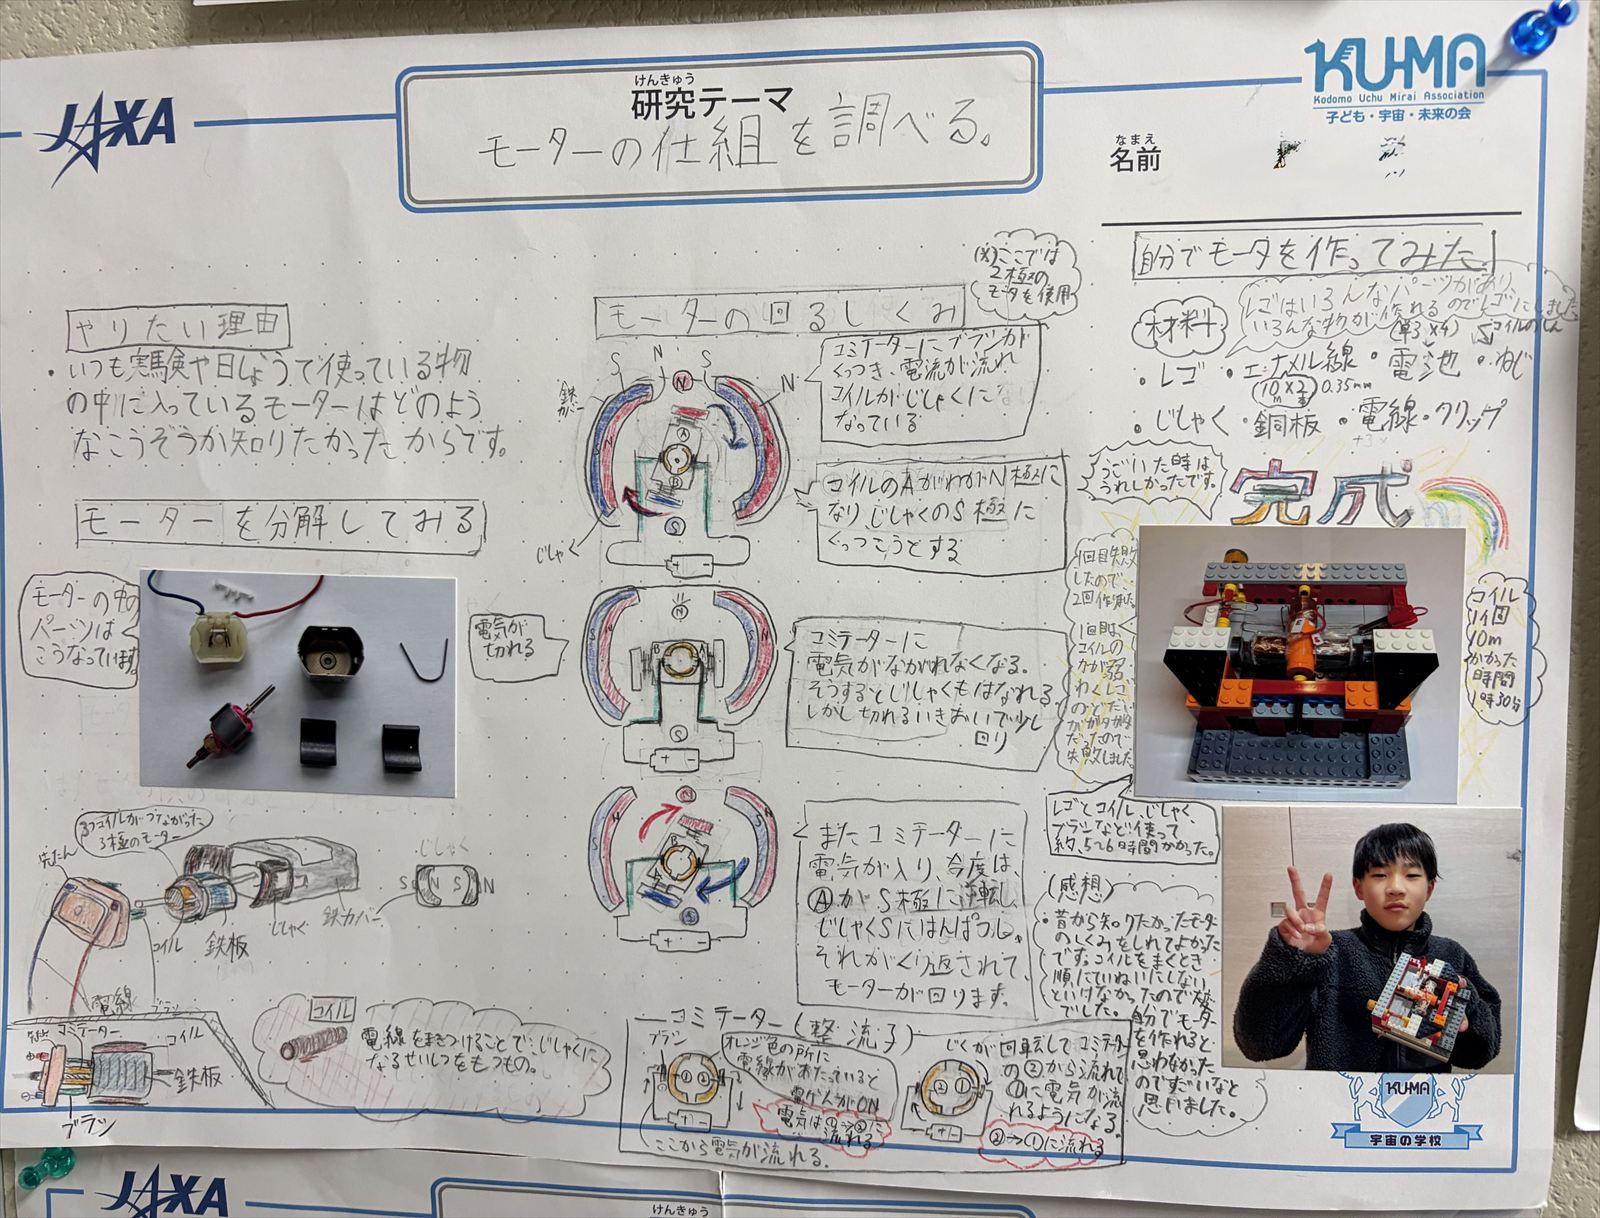 JAXA
けんきゅう
研究テーマ
モーターの仕組を調べる。
KU-MA
Kodomo Uchu Mirai Association
子ども・宇宙・未来の会
なまえ
名前
やりたい理由
・いつも実験や日じょうで使っている物
の中に入っているモーターはどのよう
なこうぞうか知りたかったからです。
モーターを分解してみる
モーターの中の
パーツは
こうなっています。
3つコイルがつながった
3極のモーター
コイル
鉄板
じしゃく
鉄カバー
じしゃく
S
N
S
N
電線
ブラシ
コミテーター
コイル
鉄板
ブラシ
コイル
電線をまきつけることで、じしゃくに
なるせいしつをもつもの。
モーターの回るしくみ
(※)ここでは
2極の
モータを使用
鉄
カバー
S
N
S
N
N
A
B
S
じしゃく
コミテーターにブラシが
くっつき、電流が流れ
コイルがじしゃくに
なっている
コイルのAがわがN極に
なり、じしゃくのS極に
くっつこうとする
電気が
切れる
N
B
A
S
コミテーターに
電気がながれなくなる。
そうするとじしゃくもはなれる
しかし切れるいきおいで少し
回り
N
S
またコミテーターに
電気が入り、今度は、
ⒶがS極に逆転し、
じしゃくSにはんぱつし、
それがくり返されて、
モーターが回ります。
コミテーター(整流子)
ブラシ
オレンジ色の所に
電線があたっていると
電気は①→②に
流れる
ここから電気が流れる。
じくが回転してコミテーター
の②から流れて
①に電気が流
れるようになる。
②→①に流れる
自分でモータを作ってみた
材料
レゴはいろんなパーツがあり、
いろんな物が作れるのでレゴにしました。
・レゴ
・エナメル線
10m×2
0.35mm
・電池
(単3×4)
・ねじ
・じしゃく
・銅板
・電線
・クリップ
うごいた時は
うれしかったです。
完成
1回目失敗
したので、
2回作りました。
1回目は、
コイルの
力が弱
わくレゴ
のどだい
がガタガタ
だったので
失敗しました。
コイル
1個
10m
かかった
時間
1時30分
レゴとコイル、じしゃく、
ブラシなど使って
約、5~6時間かかった。
(感想)
・昔から知りたかったモーター
のしくみをしれてよかった
です。コイルをまくとき
順にていねいにしない
といけなかったので大変
でした。自分でモーター
を作れると
思わなかった
のですごいなと
思いました。
KU-MA
宇宙の学校
JAXA
けんきゅう